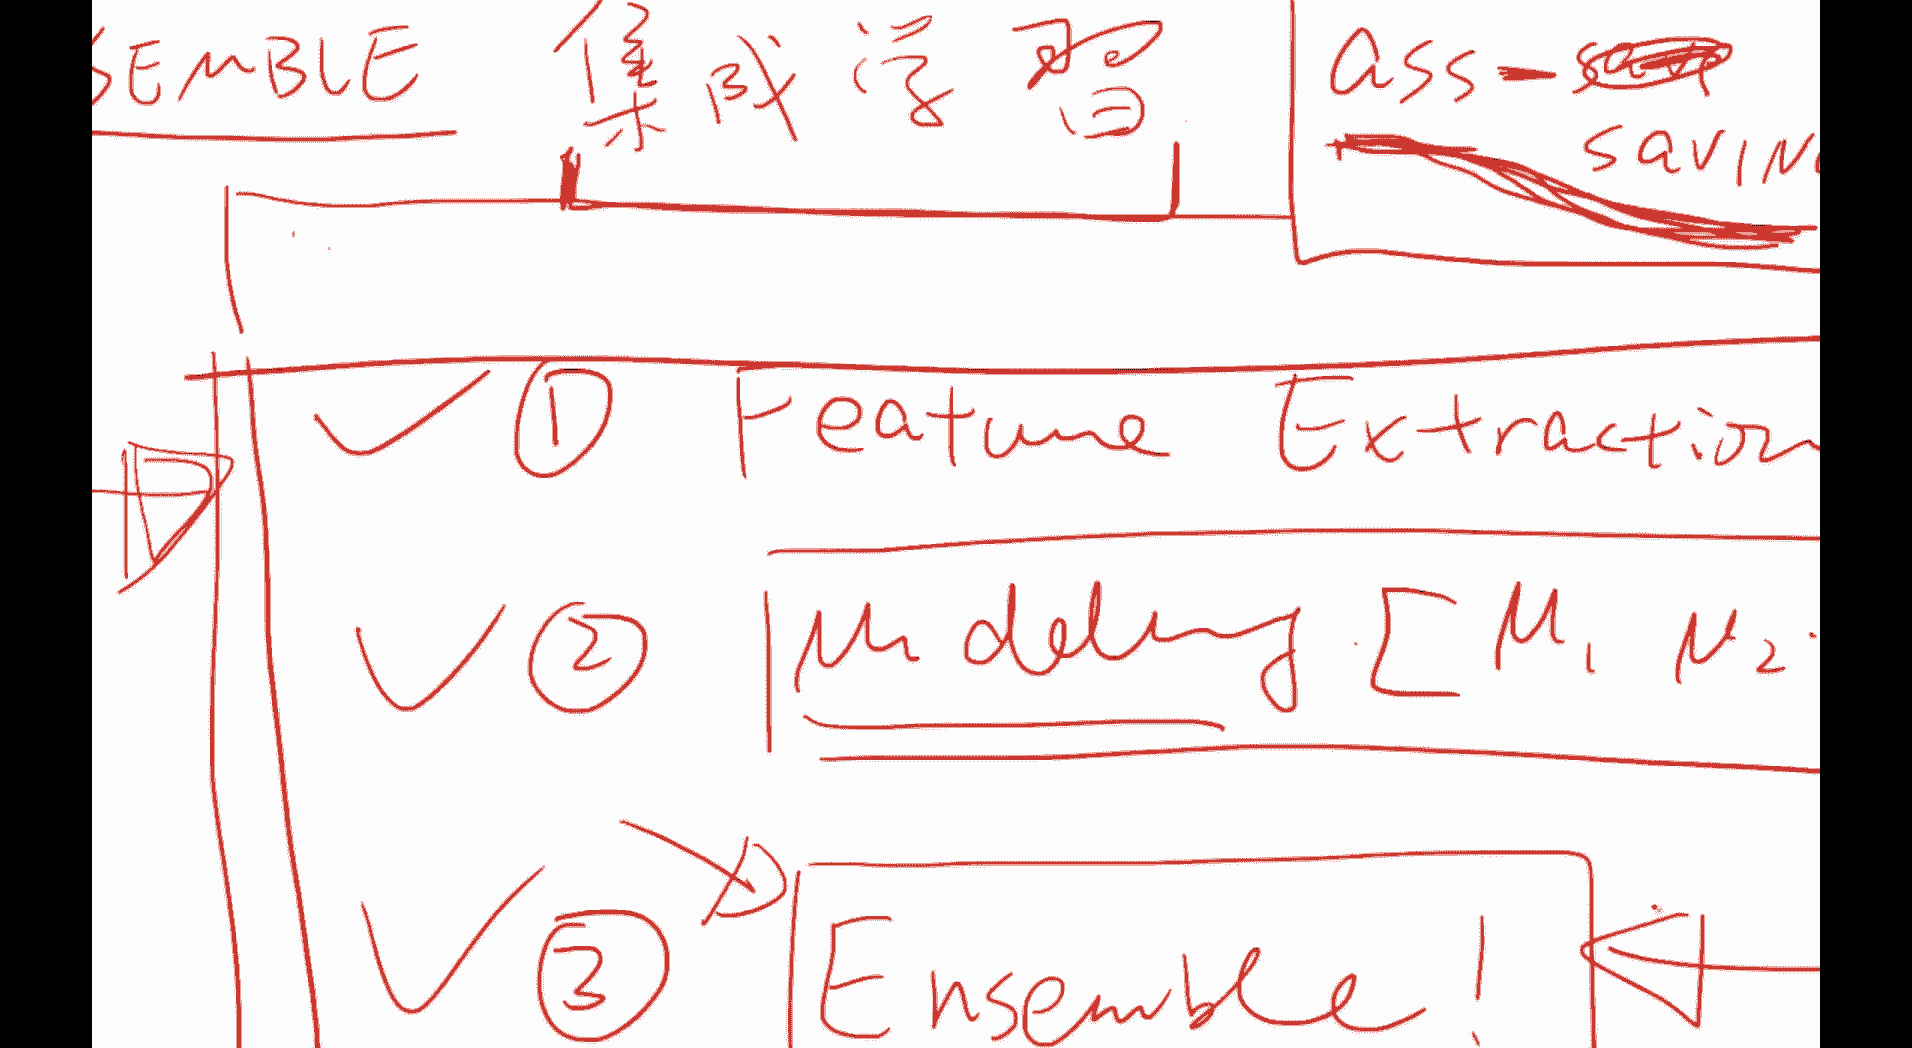 SEMBLE 集成学習
ass-
SAVIN
① Feature Extraction
② Modeling [M₁ M₂.
③ Ensemble!